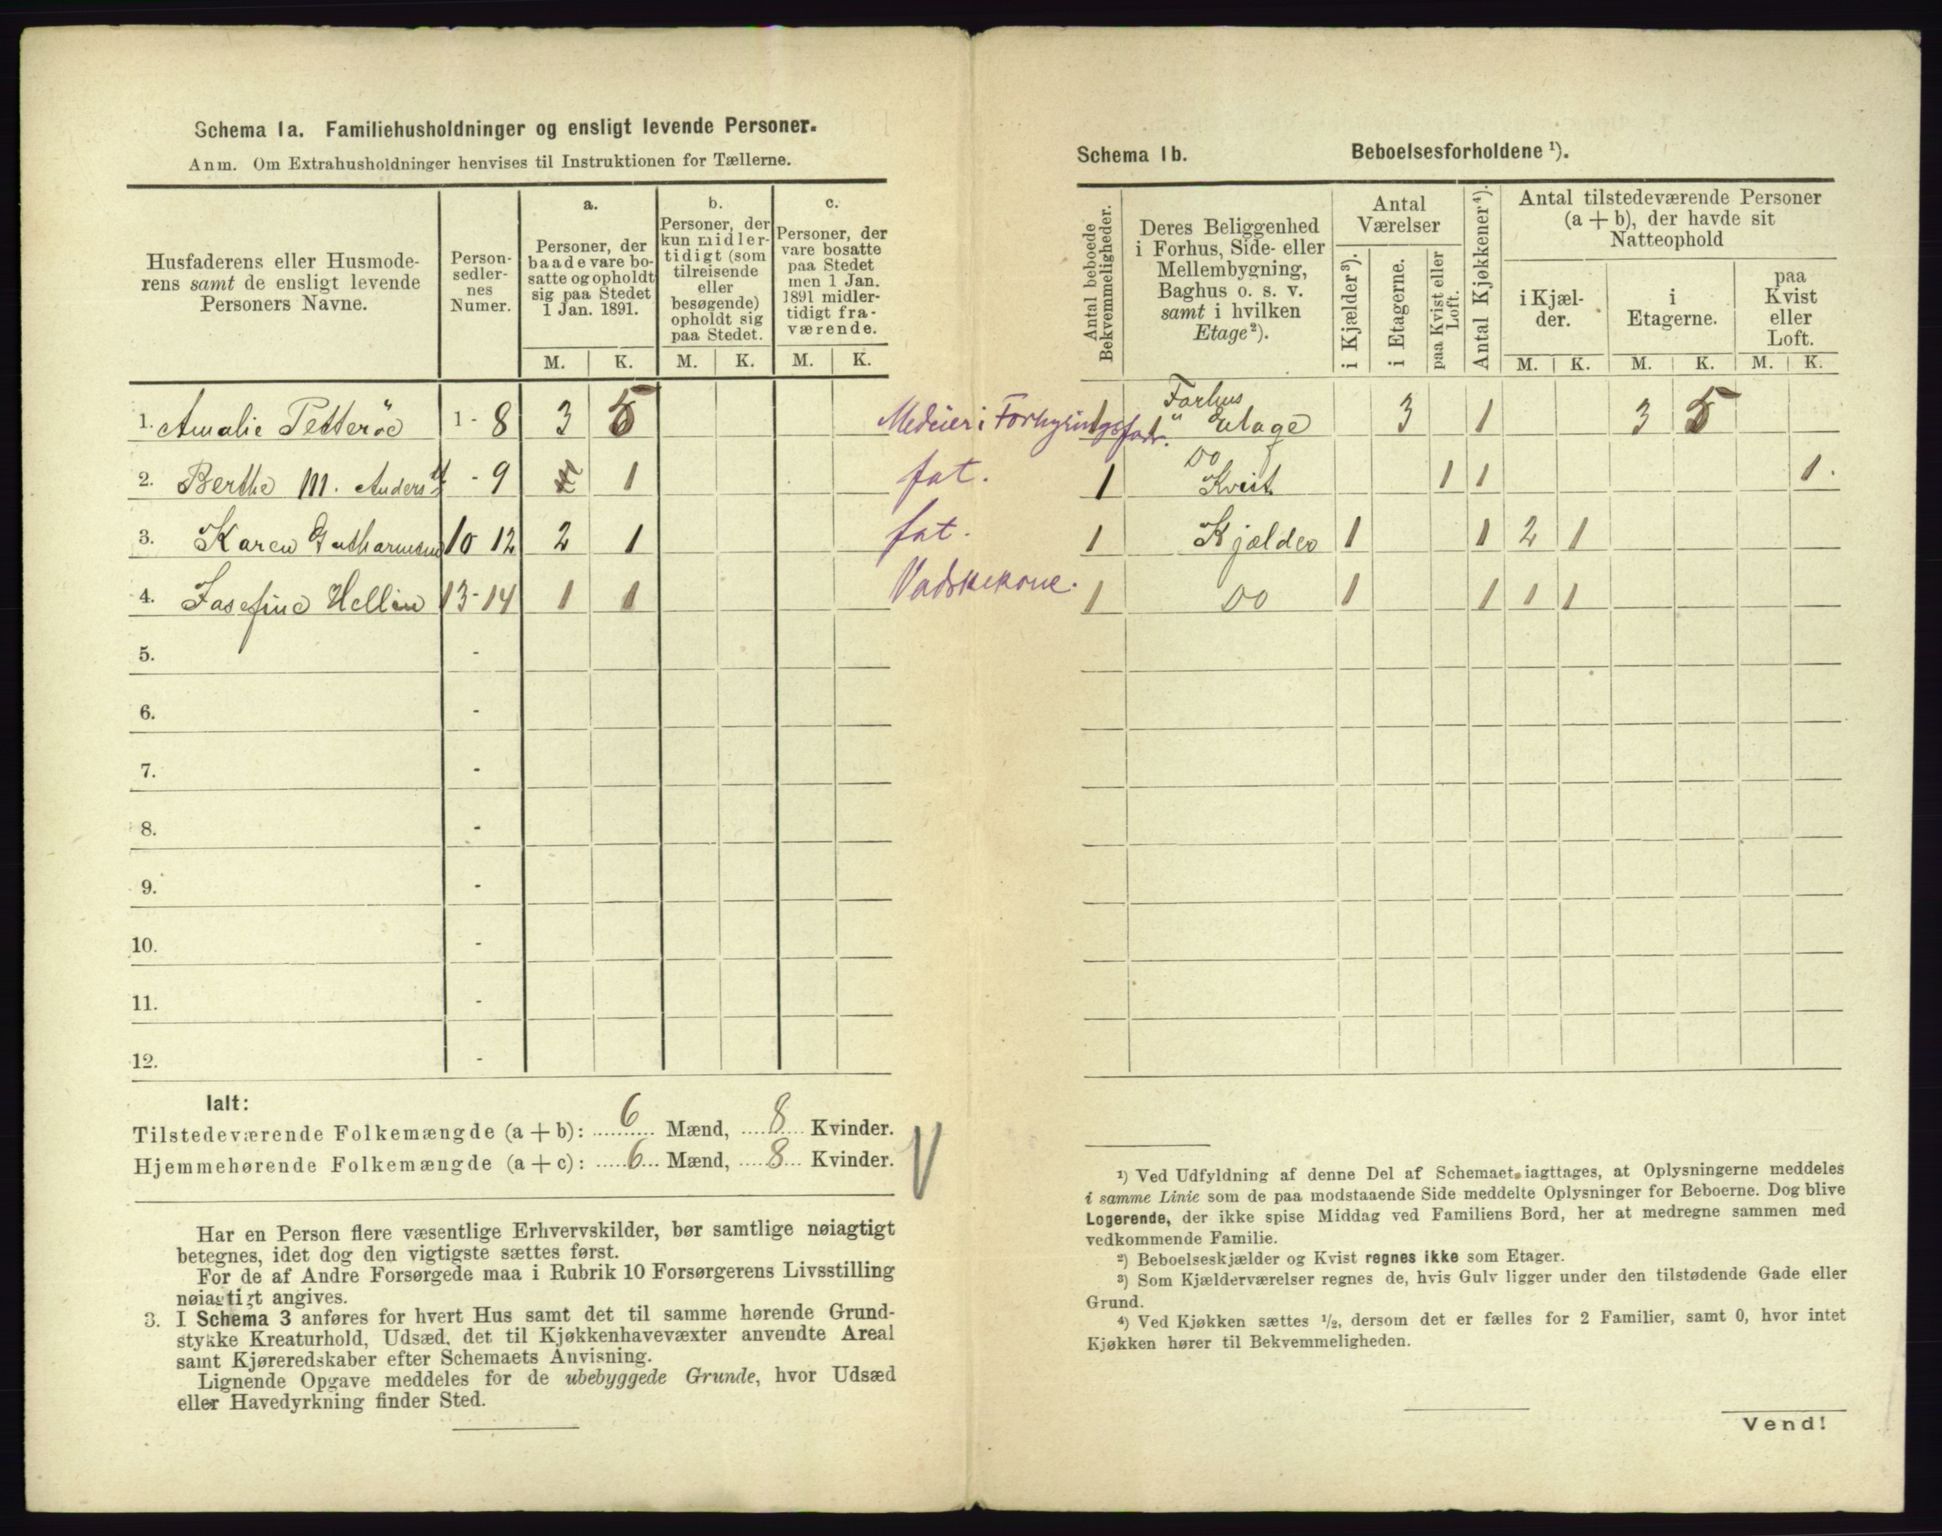 Schema 1a. Familiehusholdninger og ensligt levende Personer.
Anm. Om Extrahusholdninger henvises til Instruktionen for Tællerne.
Husfaderens eller Husmode-
rens samt de ensligt levende
Personers Navne.
Person-
sedler-
nes
Numer.
a.
Personer, der
baade vare bo-
satte og opholdt
sig paa Stedet
1 Jan. 1891.
b.
Personer, der
kun midler-
tidigt (som
tilreisende
eller
besøgende)
opholdt sig
paa Stedet.
c.
Personer, der
vare bosatte
paa Stedet
men 1 Jan.
1891 midler-
tidigt fra-
værende.
M. K. M. K. M. K.
1. Amalie Petterøe 1 - 8 3 5
2. Berthe M. Anders - 9 1
3. Karen 10 12 2 1
4. Josefine Hellin 13 - 14 1 1
5. -
6. -
7. -
8. -
9. -
10. -
11. -
12. -
Ialt:
Tilstedeværende Folkemængde (a + b): 6 Mænd, 8 Kvinder.
Hjemmehørende Folkemængde (a + c): 6 Mænd, 8 Kvinder.
Har en Person flere væsentlige Erhvervskilder, bør samtlige nøiagtigt
betegnes, idet dog den vigtigste sættes først.
For de af Andre Forsørgede maa i Rubrik 10 Forsørgerens Livsstilling
nøiagtigt angives.
3. I Schema 3 anføres for hvert Hus samt det til samme hørende Grund-
stykke Kreaturhold, Udsæd, det til Kjøkkenhavevæxter anvendte Areal
samt Kjøreredskaber efter Schemaets Anvisning.
Lignende Opgave meddeles for de ubebyggede Grunde, hvor Udsæd
eller Havedyrkning finder Sted.
Schema 1b. Beboelsesforholdene ¹).
Antal beboede
Bekvemmeligheder.
Deres Beliggenhed
i Forhus, Side- eller
Mellembygning,
Baghus o. s. v.
samt i hvilken
Etage²).
Antal
Værelser
i Kjælder³).
i Etagerne.
paa Kvist eller
Loft.
Antal Kjøkkener⁴).
Antal tilstedeværende Personer
(a + b), der havde sit
Natteophold
i Kjæl-
der.
i
Etagerne.
paa
Kvist
eller
Loft.
M. K. M. K. M. K.
1 Forhus
" Etage 3 1 3 5
fat. 1 Do
Kvist 1 1 1.
fat. 1 Kjælder 1 1 2 1
Vadskekone. 1 Do 1 1 1 1
¹) Ved Udfyldning af denne Del af Schemaet iagttages, at Oplysningerne meddeles
i samme Linie som de paa modstaaende Side meddelte Oplysninger for Beboerne. Dog blive
Logerende, der ikke spise Middag ved Familiens Bord, her at medregne sammen med
vedkommende Familie.
²) Beboelseskjælder og Kvist regnes ikke som Etager.
³) Som Kjælderværelser regnes de, hvis Gulv ligger under den tilstødende Gade eller
Grund.
⁴) Ved Kjøkken sættes ¹/₂, dersom det er fælles for 2 Familier, samt 0, hvor intet
Kjøkken hører til Bekvemmeligheden.
Vend!